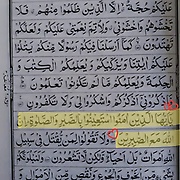 عَلَيْكُمْ حُجَّةٌ إِلَّا الَّذِينَ ظَلَمُوا مِنْهُمْ فَلَا
تَخْشَوْهُمْ وَاخْشَوْنِي وَلِأُتِمَّ نِعْمَتِي عَلَيْكُمْ وَلَعَلَّكُمْ
تَهْتَدُونَ كَمَا أَرْسَلْنَا فِيكُمْ رَسُولًا مِنْكُمْ يَتْلُوا
عَلَيْكُمْ اٰيٰتِنَا وَيُزَكِّيكُمْ وَيُعَلِّمُكُمُ الْكِتٰبَ
وَالْحِكْمَةَ وَيُعَلِّمُكُمْ مَا لَمْ تَكُونُوا تَعْلَمُونَ
فَاذْكُرُونِي أَذْكُرْكُمْ وَاشْكُرُوا لِي وَلَا تَكْفُرُونِ
يٰأَيُّهَا الَّذِينَ اٰمَنُوا اسْتَعِينُوا بِالصَّبْرِ وَالصَّلٰوةِ إِنَّ
اللّٰهَ مَعَ الصّٰبِرِينَ وَلَا تَقُولُوا لِمَنْ يُقْتَلُ فِي سَبِيلِ
اللّٰهِ أَمْوَاتٌ بَلْ أَحْيَاءٌ وَلٰكِنْ لَا تَشْعُرُونَ وَلَنَبْلُوَنَّكُمْ